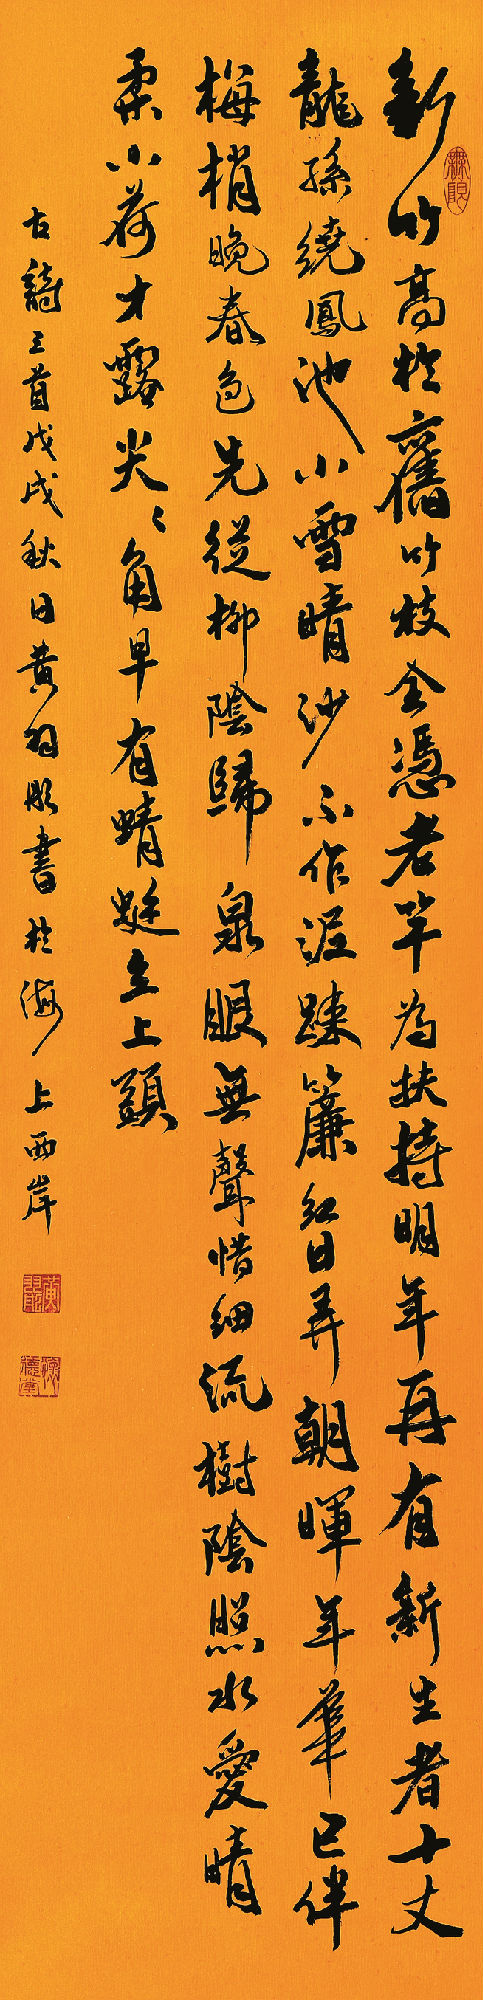 新竹高於舊竹枝全憑老竿為扶持明年再有新生者十丈
龍孫繞鳳池小雪晴沙不作泥疎簾紅日弄朝暉年華已伴
梅梢晚春色先從柳陰歸泉眼無聲惜細流樹陰照水愛晴
柔小荷才露尖〻角早有蜻蜓立上頭
古詩三首戊戌秋日黄羽彤書於海上西岸